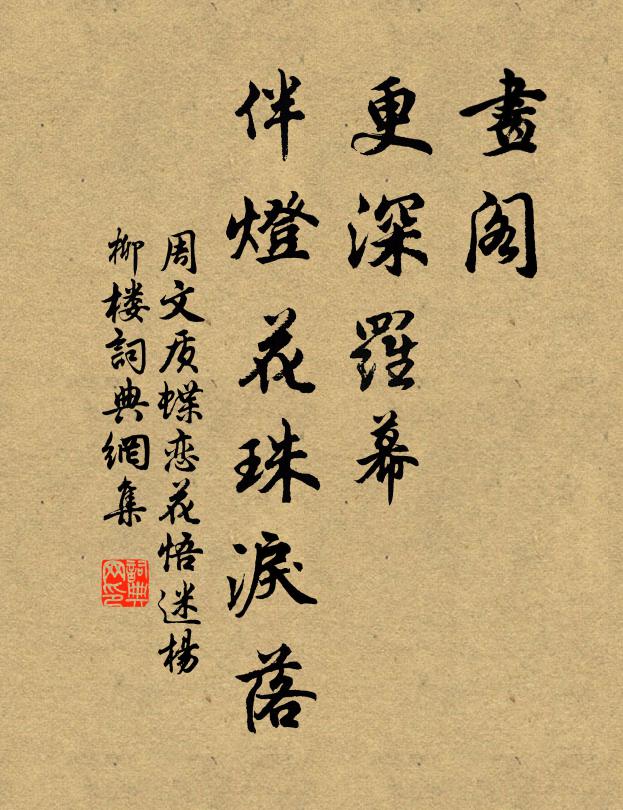 畫阁
更深羅幕
伴燈花珠淚落
周文质蝶恋花悟迷楊
柳楼詞典網集
詞典
网印